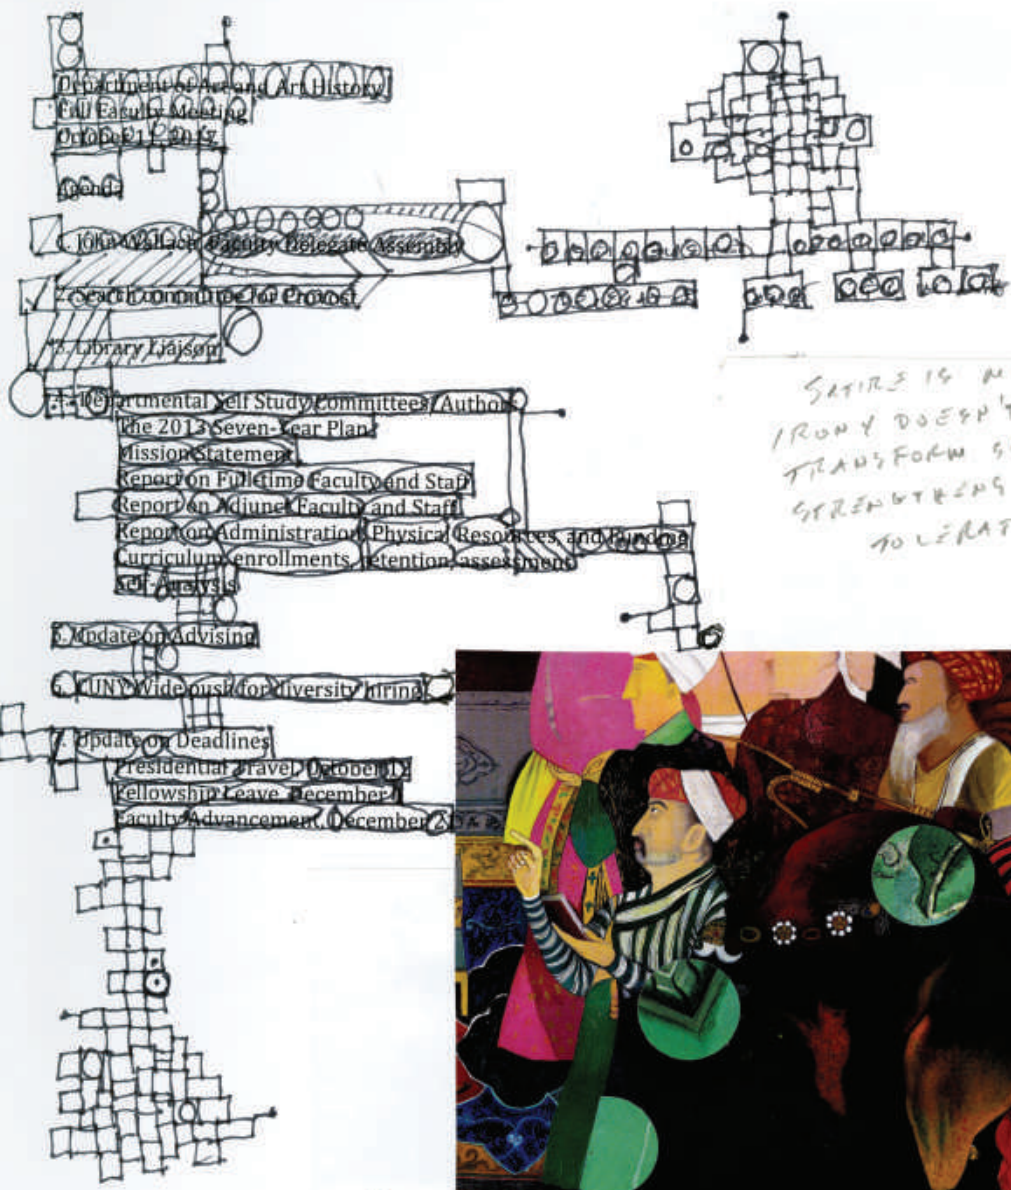 Department of Art and Art History
Full Faculty Meeting
October 11, 2017
Agenda
1. John Wallach, Faculty Delegate Assembly
2. Search committee for Provost
3. Library Liaison
4. Departmental Self Study Committees/Authors
The 2013 Seven-Year Plan
Mission Statement
Report on Full-time Faculty and Staff
Report on Adjunct Faculty and Staff
Report on Administration, Physical Resources, and Funding
Curriculum, enrollments, retention, assessment
Self-Analysis
5. Update on Advising
6. CUNY Wide push for diversity hiring
7. Update on Deadlines
Presidential Travel, October
Fellowship Leave, December
Faculty Advancement, December
SATIRE IS
IRONY DOESN'T
TRANSFORM
STRENGTHENS
TOLERAT